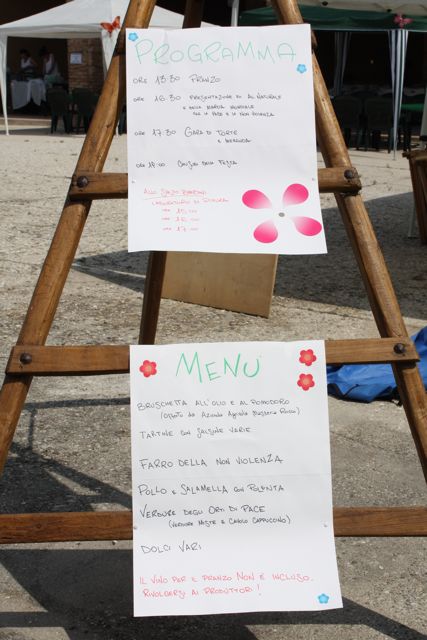 PROGRAMMA
ORE 13:30 PRANZO
ORE 16:30 PRESENTAZIONE DI AL NATURALE
E DELLA MARCIA MONDIALE
PER LA PACE E LA NON VIOLENZA
ORE 17:30 GARA DI TORTE
E MERENDA
ORE 19:00 DELLA FESTA
ALLO SPAZIO BAMBINI
LABORATORIO DI
ORE 15:00
ORE 16:00
ORE 17:00
MENU'
BRUSCHETTA ALL'OLIO E AL POMODORO
(offerto da Azienda Agricola)
TARTINE CON SALSINE VARIE
FARRO DELLA NON VIOLENZA
POLLO E SALAMELLA CON POLENTA
VERDURE DEGLI ORTI DI PACE
(VERDURE MISTE E CAVOLO CAPPUCCIO)
DOLCI VARI
IL VINO PER IL PRANZO NON È INCLUSO.
RIVOLGERSI AI PRODUTTORI!